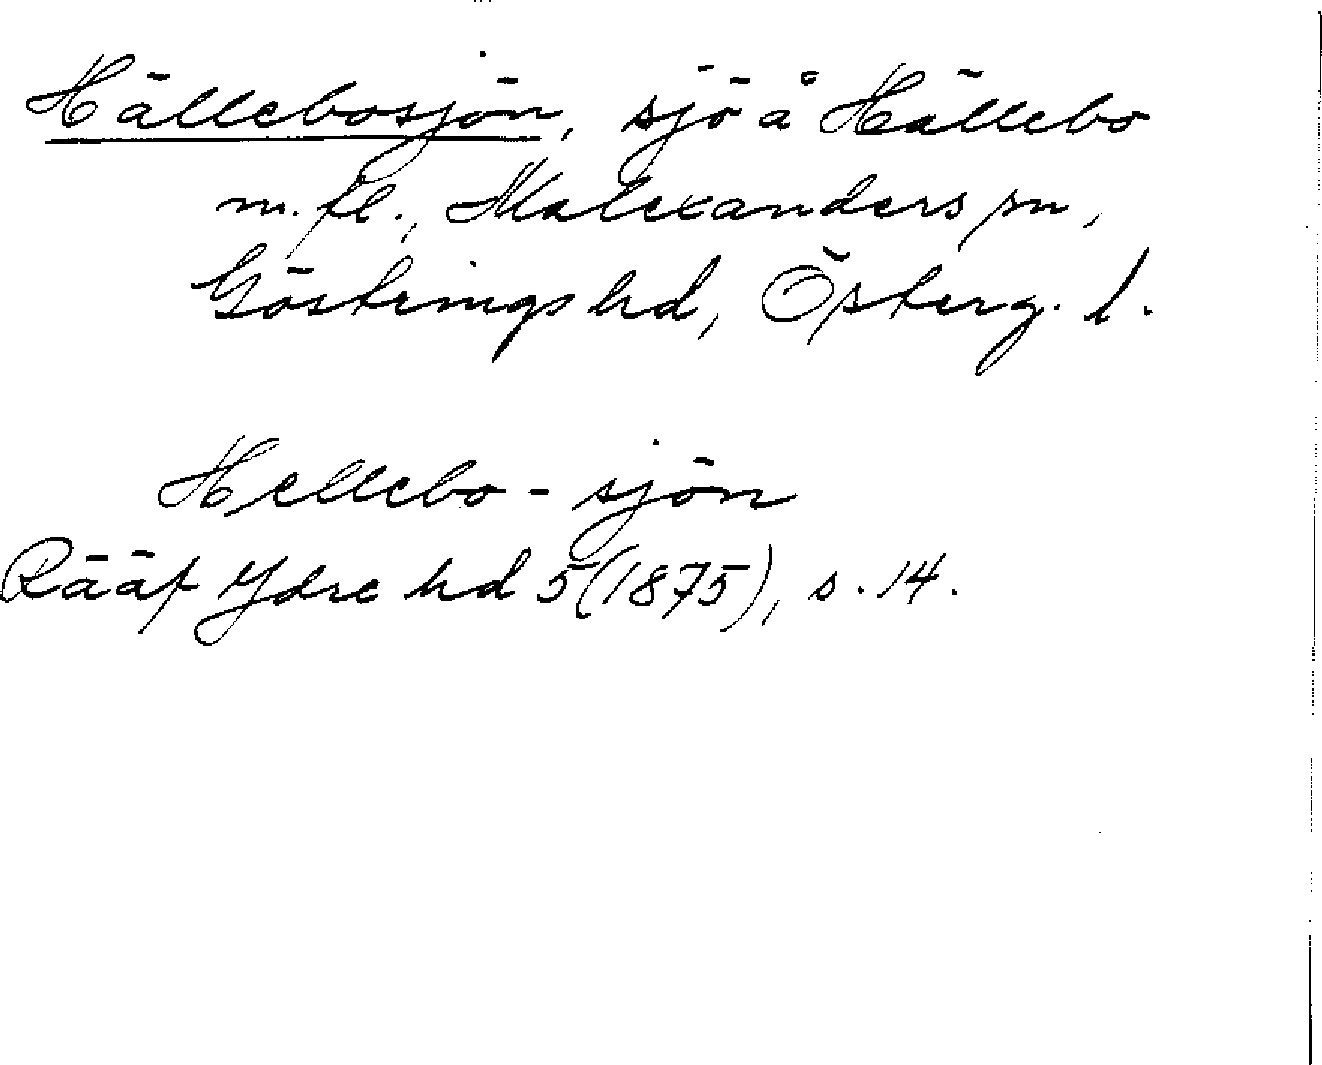 Hällebosjön, sjö å Hällebo
m.fl., Malexanders sn,
Göstrings hd, Österg. l.
Hellebo-sjön
Rääf Ydre hd 5 (1875), s. 14.